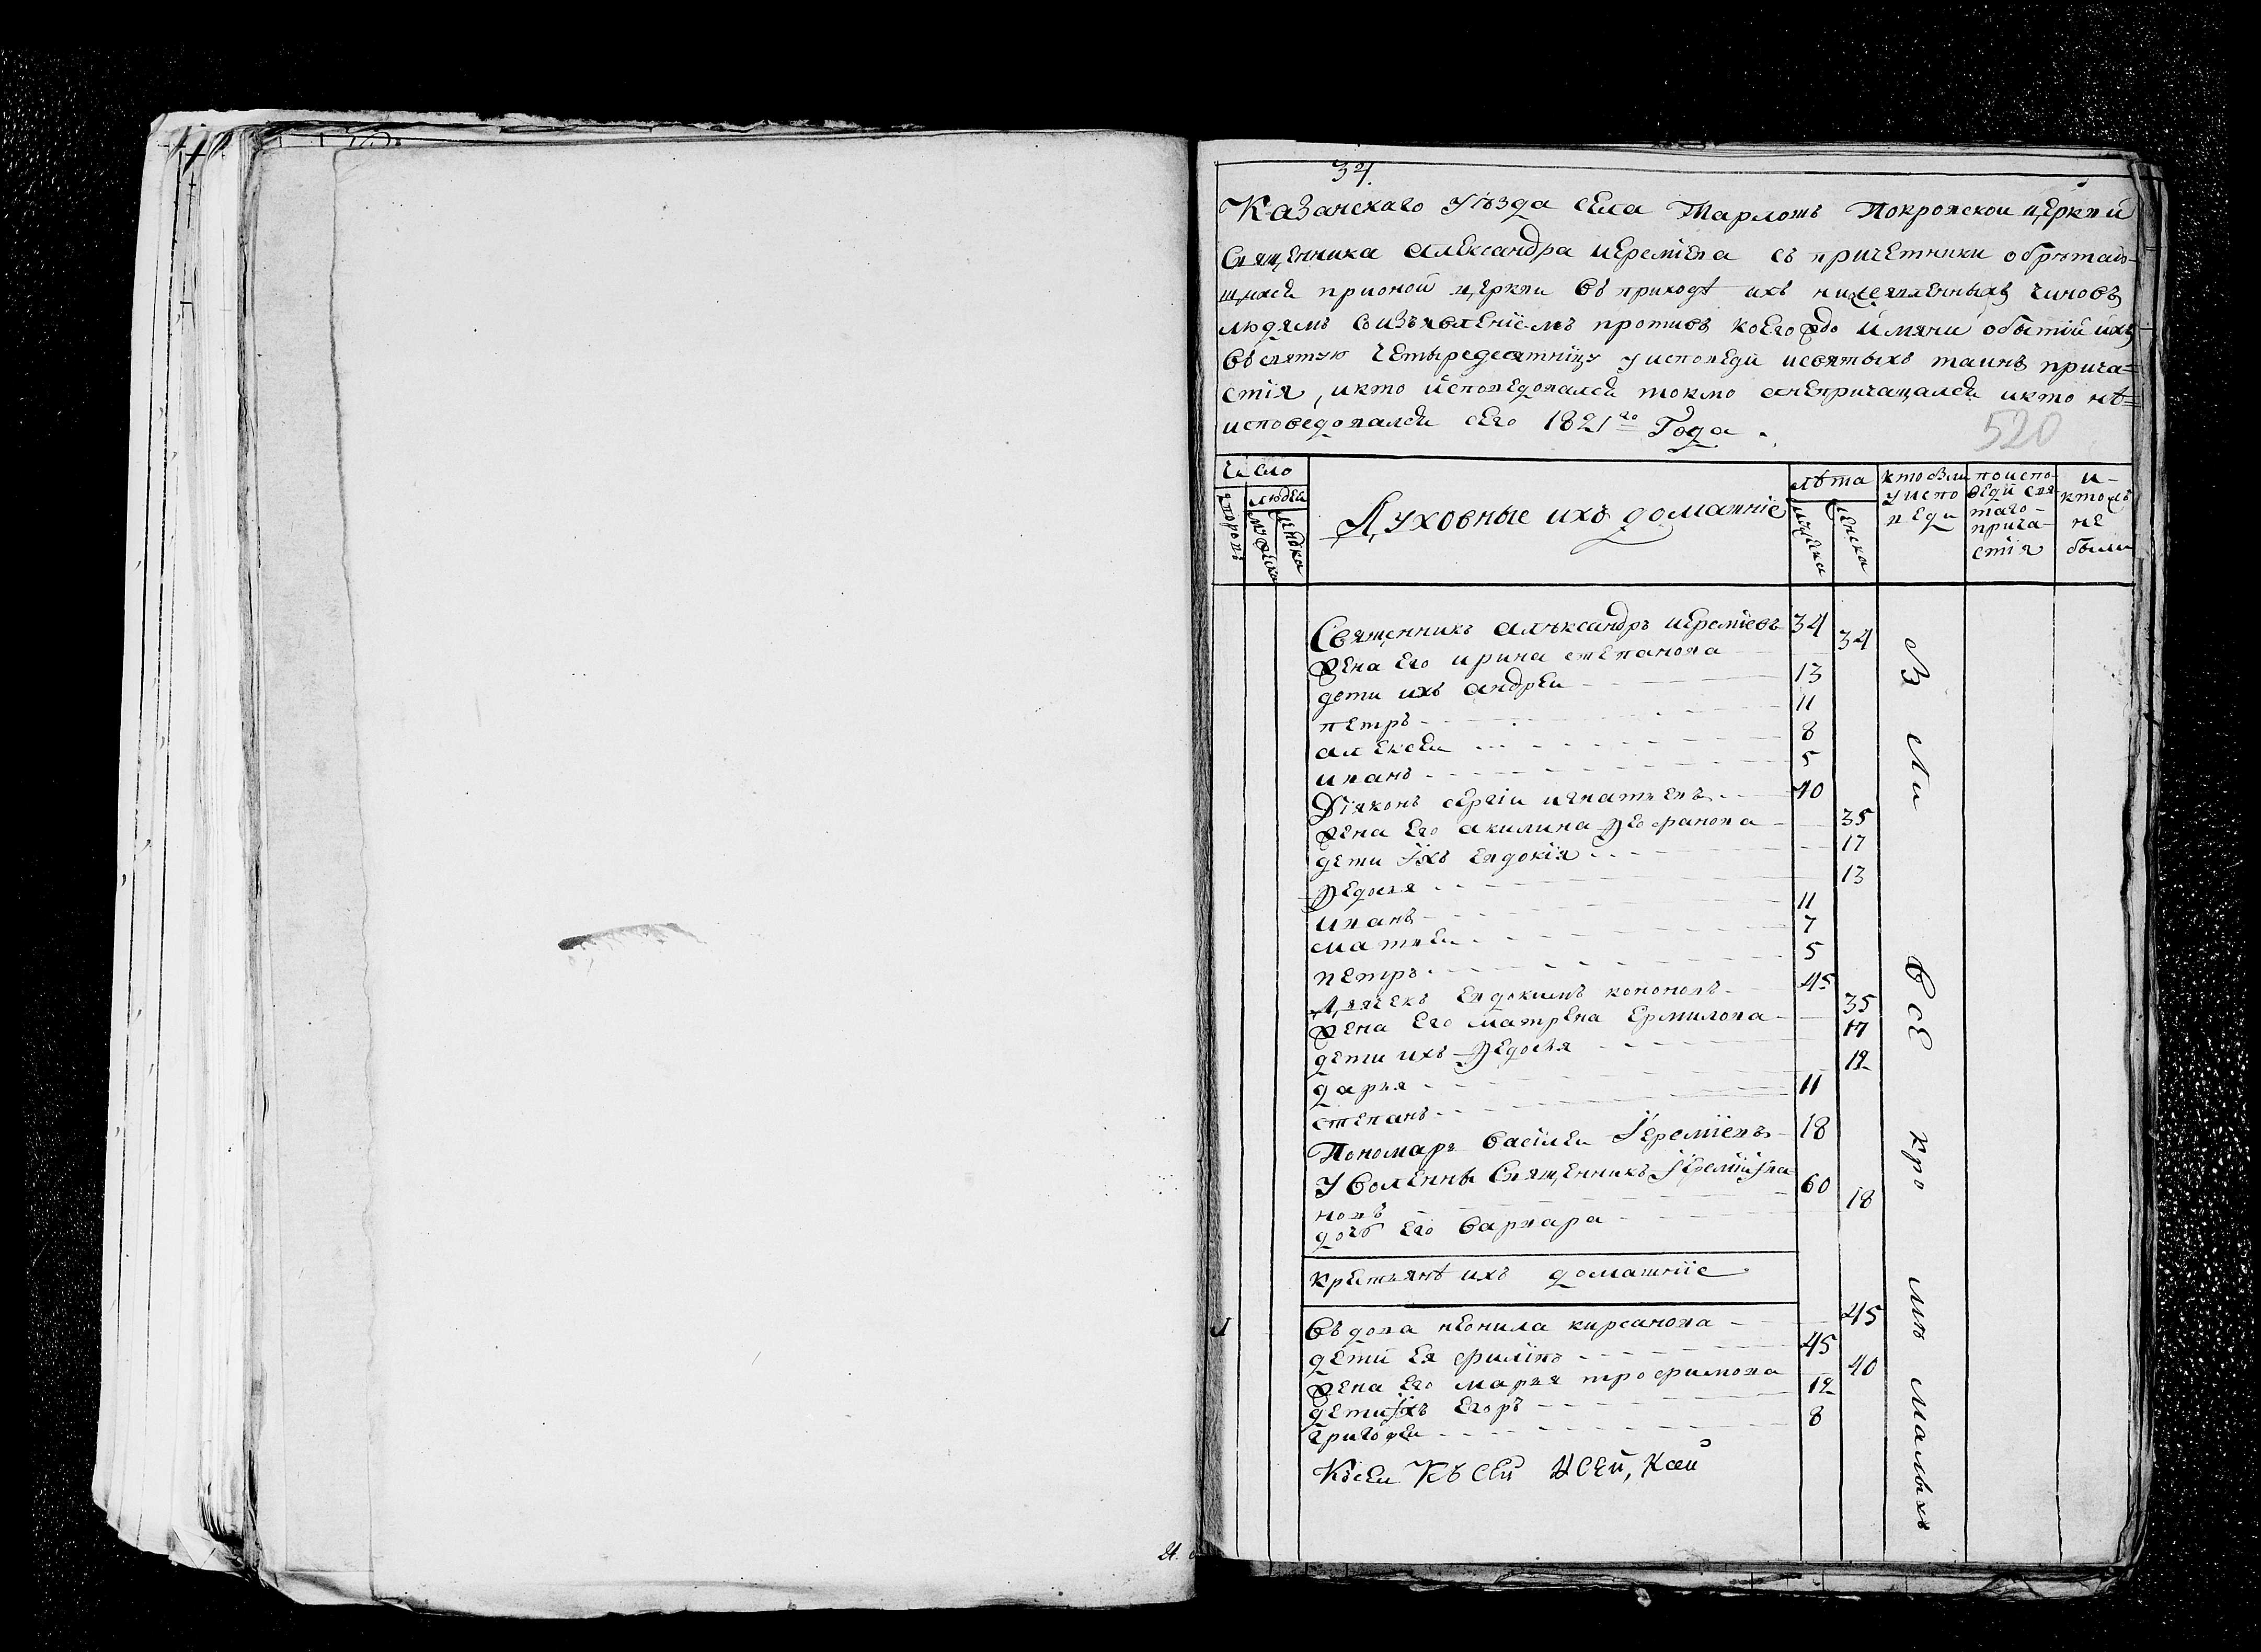 34.
Казанскаго уѣзда села Тарлошъ Покровской церкви
Священника александра иеремиева съ причетники обрѣтаю-
щихсяприоной церкви въ приходѣ ихъ нижеявленныхъ чиновъ
людямъ соизъявленіемъ противъ коегождо имяни обытій ихъ
въ святую Четыредесятницу у исповеди исвятыхъ таинъ прича=
стія, икто исповедовался токмо анепричащался икто не=
исповедовался сего 1821го Года.
520
Число
людей
дворовъ
мужеска
женска
Духовные ихъ домашніе
лѣта
мужеска
женска
кто были
у испо
веди
поиспо-
веди свя
таго-
прича-
стія
и-
ктожъ
не
были
Священникъ александръ иеремиевъ 34
жена его ирина степанова 34
дети ихъ андреи 13
петръ 11
алексеи 8
иванъ 5
Діяконъ сергіи игнатьевъ 40
жена его акилина Феофанова 35
дети ихъ евдокія 17
Федосья 13
иванъ 11
матвеи 7
петръ 5
Дьячекъ евдокимъ кононовъ 45
жена его матрена ермилова 35
дети ихъ Федосья 17
дарья 12
степанъ 11
Пономарь василеи Iеремиевъ 18
Уволенны Священникъ Iеремій Iва
новъ 60
дочь его варвара 18
крестьянѣ ихъ домашніе
1 въдова неонила кирсанова 45
дети ея филипъ 45
жена его марья трофимова 40
дети ихъ егоръ 12
григореи 8
Къ сеи Къ сей
Были
всѣ
кро
мѣ
малыхъ